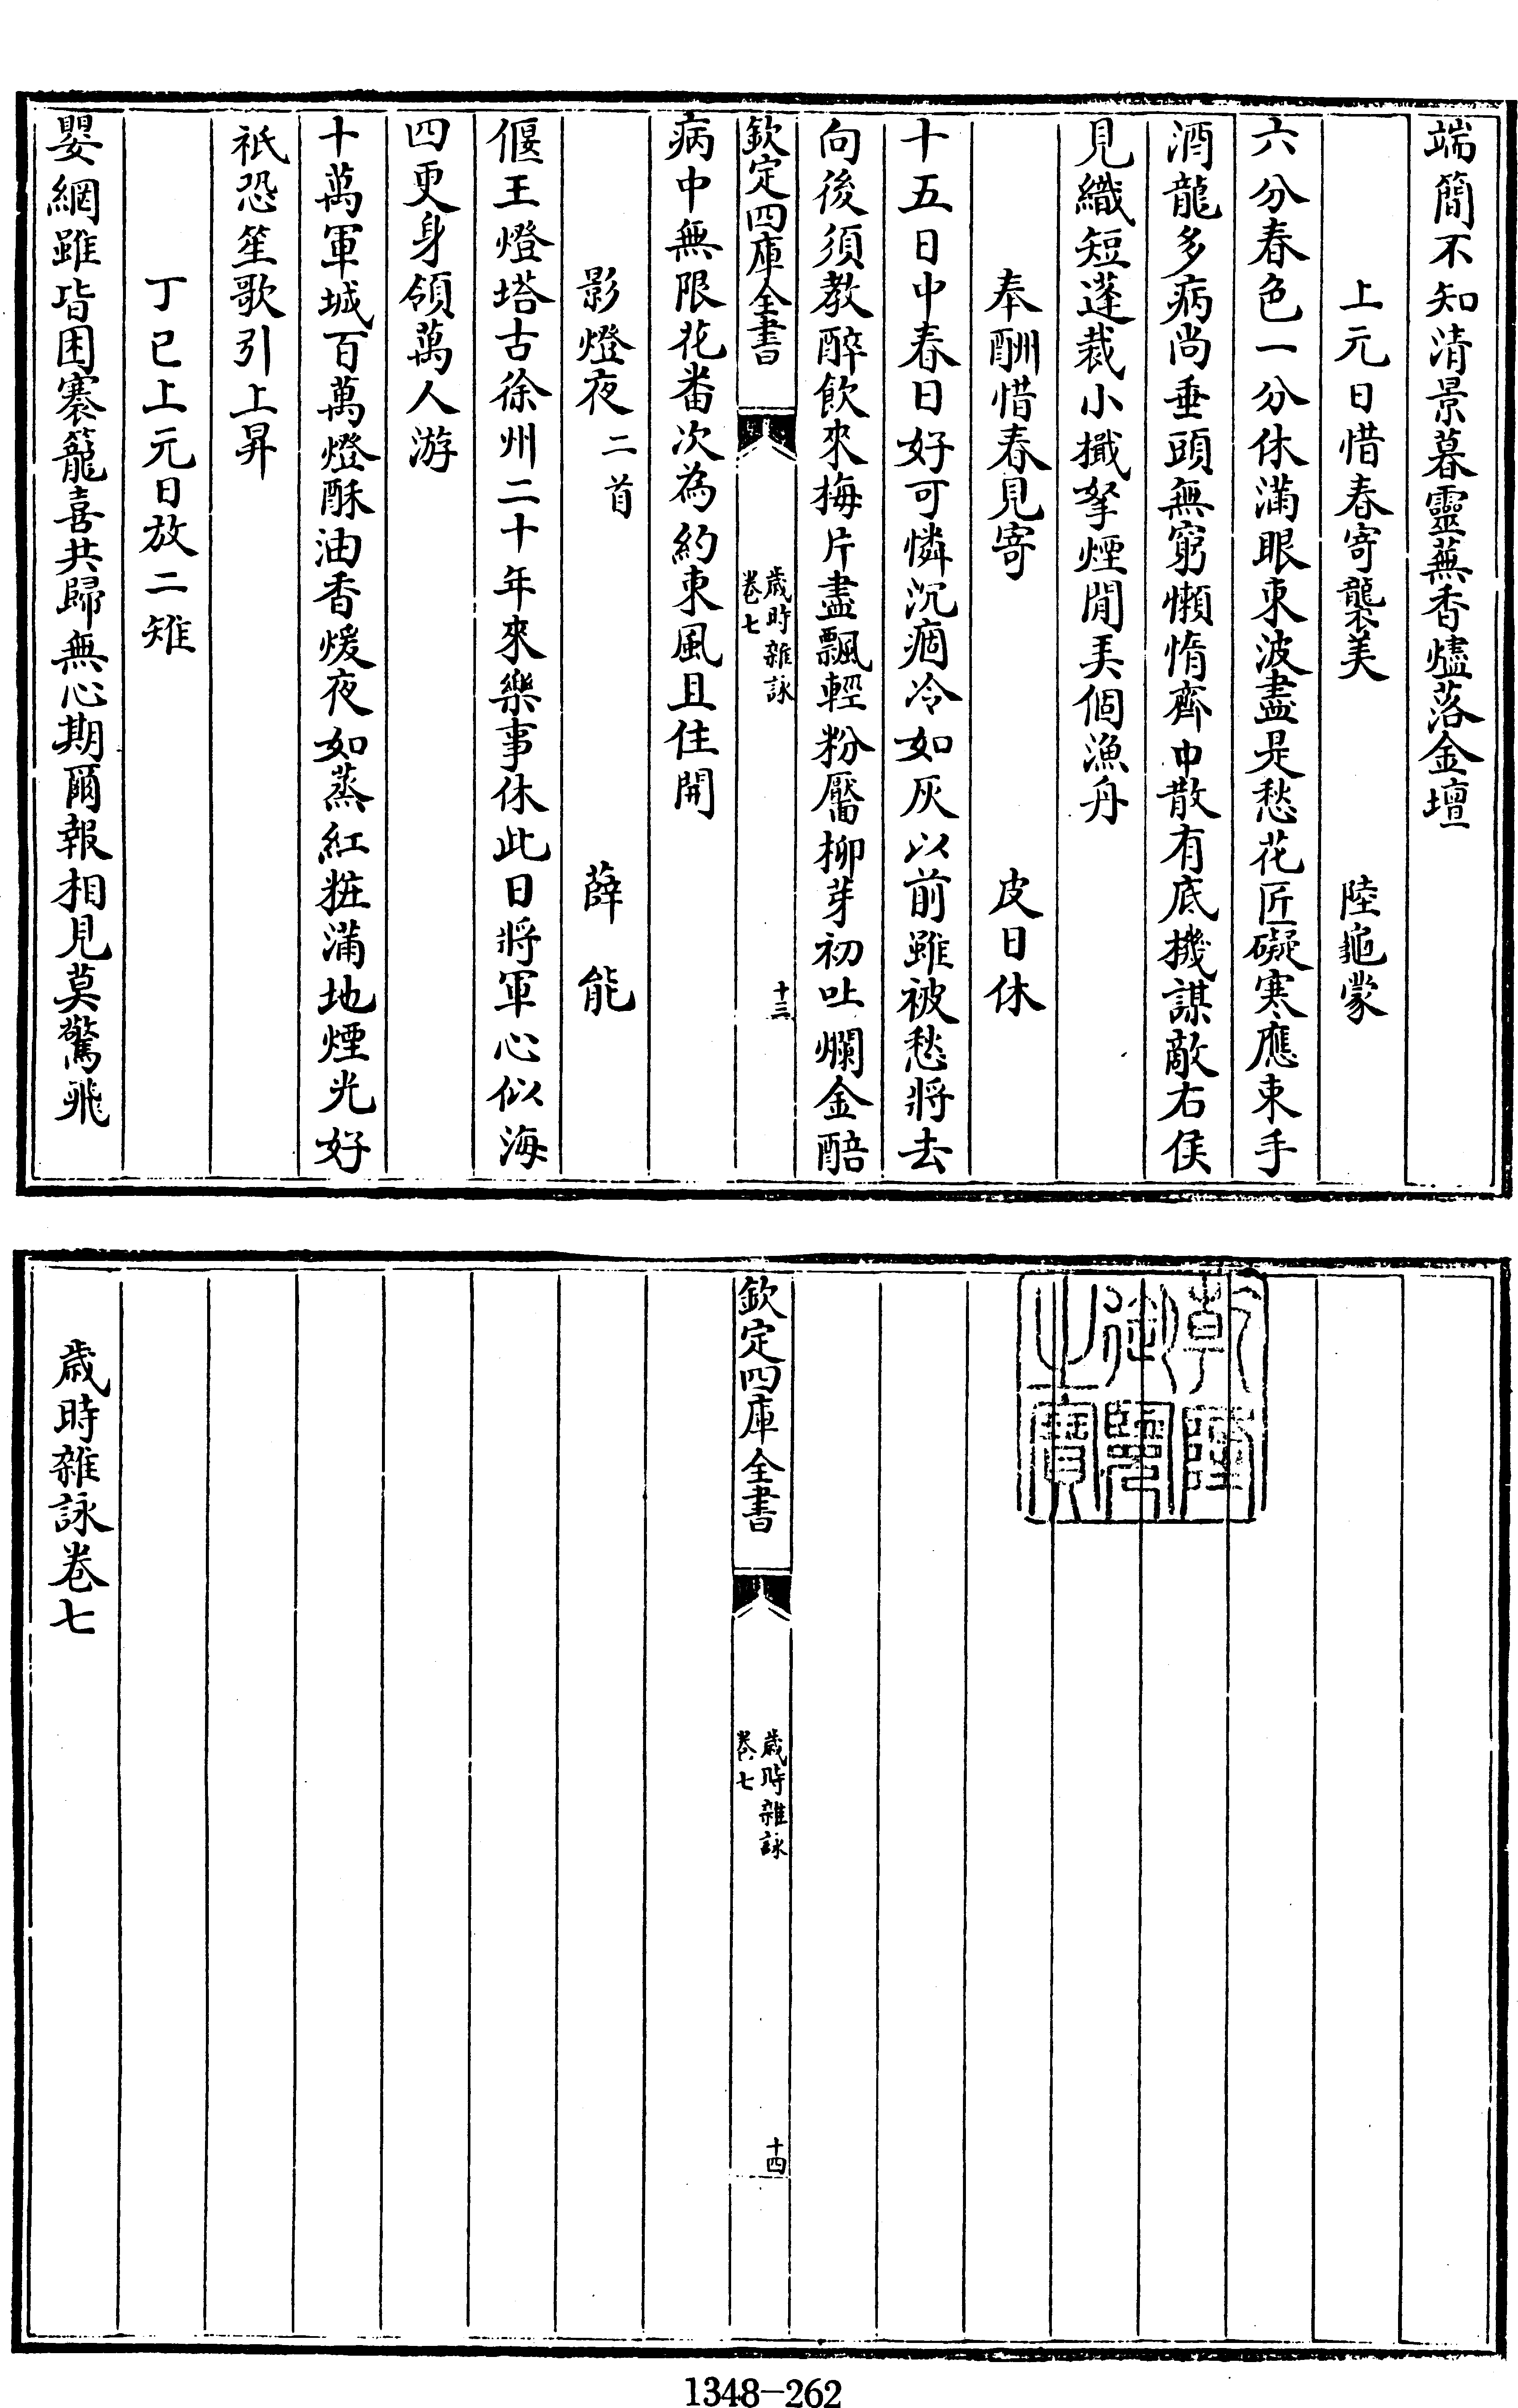 端簡不知清景暮靈蕪香燼落金壇
上元日惜春寄襲美　陸龜蒙
六分春色一分休滿眼東波盡是愁花匠礙寒應束手
酒龍多病尚垂頭無窮懶惰齊中散有底機謀敵右侯
見織短蓬裁小檝拏煙閒弄個漁舟
奉酬惜春見寄　皮日休
十五日中春日好可憐沉痼冷如灰以前雖被愁將去
向後須教醉飲來梅片盡飄輕粉靨柳芽初吐爛金醅
病中無限花番次為約東風且住開
欽定四庫全書
歲時雜詠
卷七
十三
影燈夜二首　薛能
偃王燈塔古徐州二十年來樂事休此日將軍心似海
四更身領萬人游
十萬軍城百萬燈酥油香煖夜如蒸紅粧滿地煙光好
祇恐笙歌引上昇
丁巳上元日放二雉
嬰網雖皆困褰籠喜共歸無心期爾報相見莫驚飛
乾隆御覽之寶
欽定四庫全書
歲時雜詠
卷七
十四
歲時雜詠卷七
1348-262